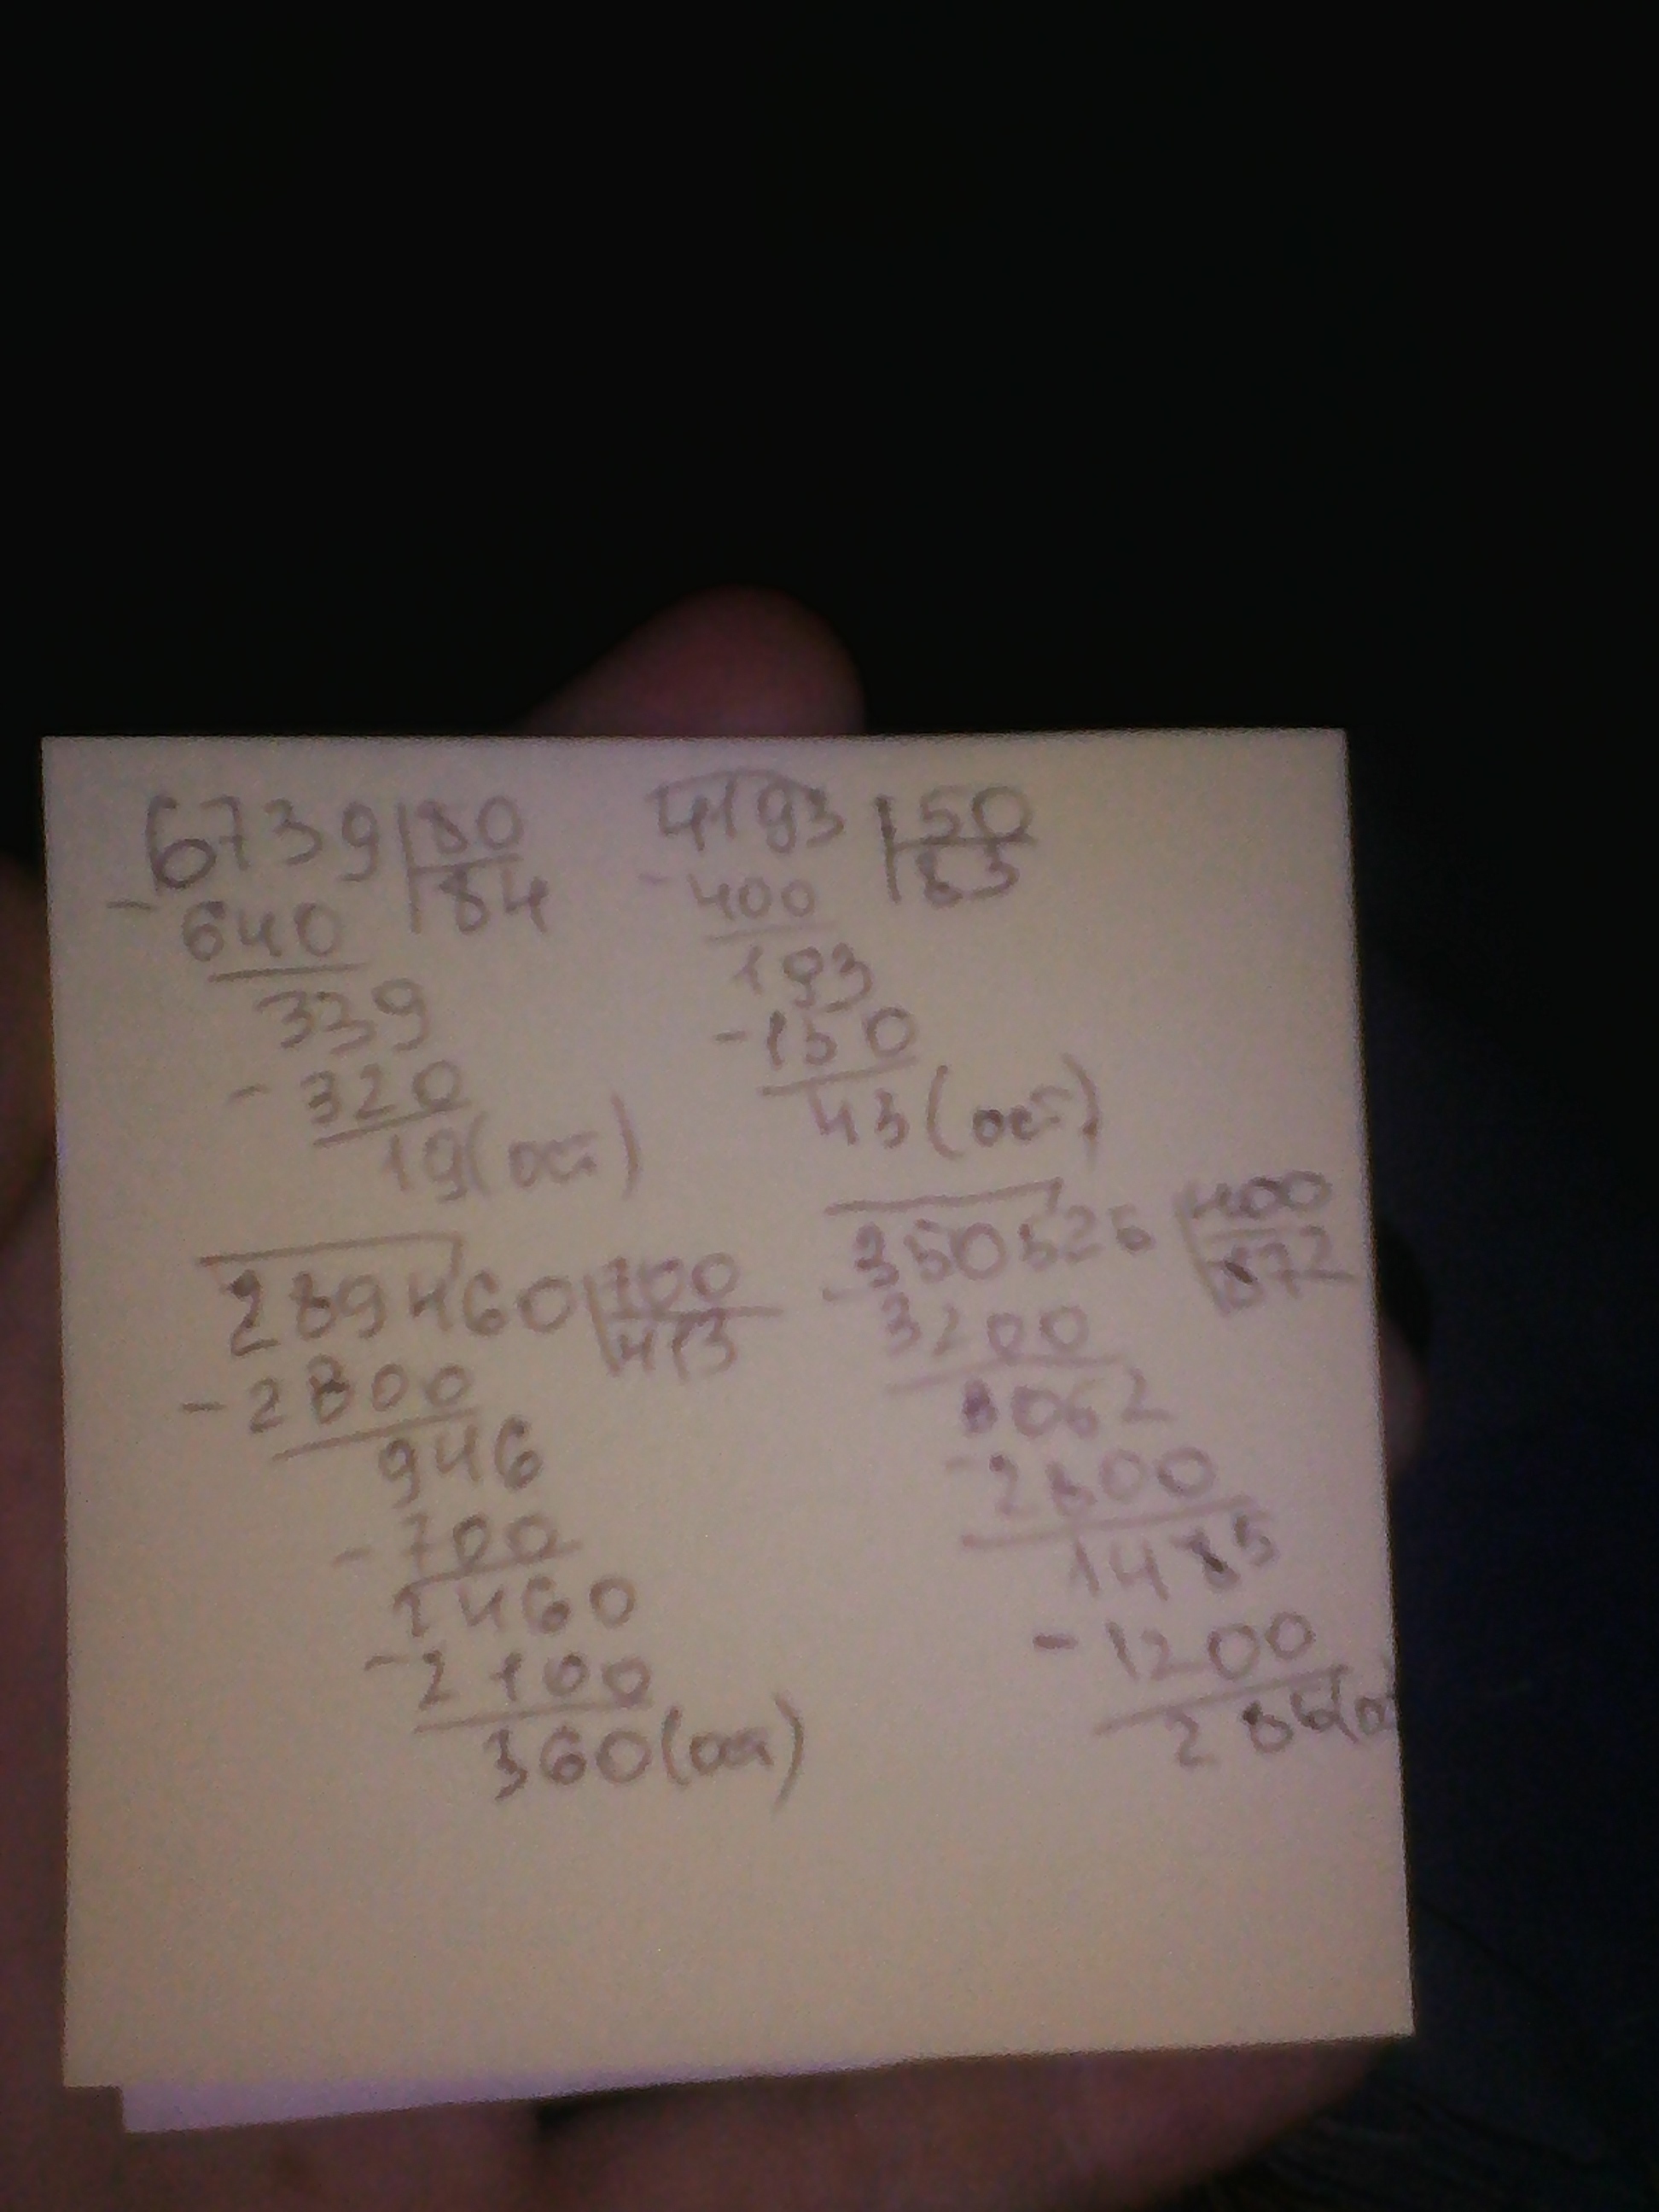 6739 80
- 640 84
339
- 320
19(ост)
4193 50
- 400 83
193
- 150
43(ост)
289460 700
- 2800 413
946
- 700
2460
- 2100
360(ост)
350525 400
- 3200 872
- 2800
1485
- 1200